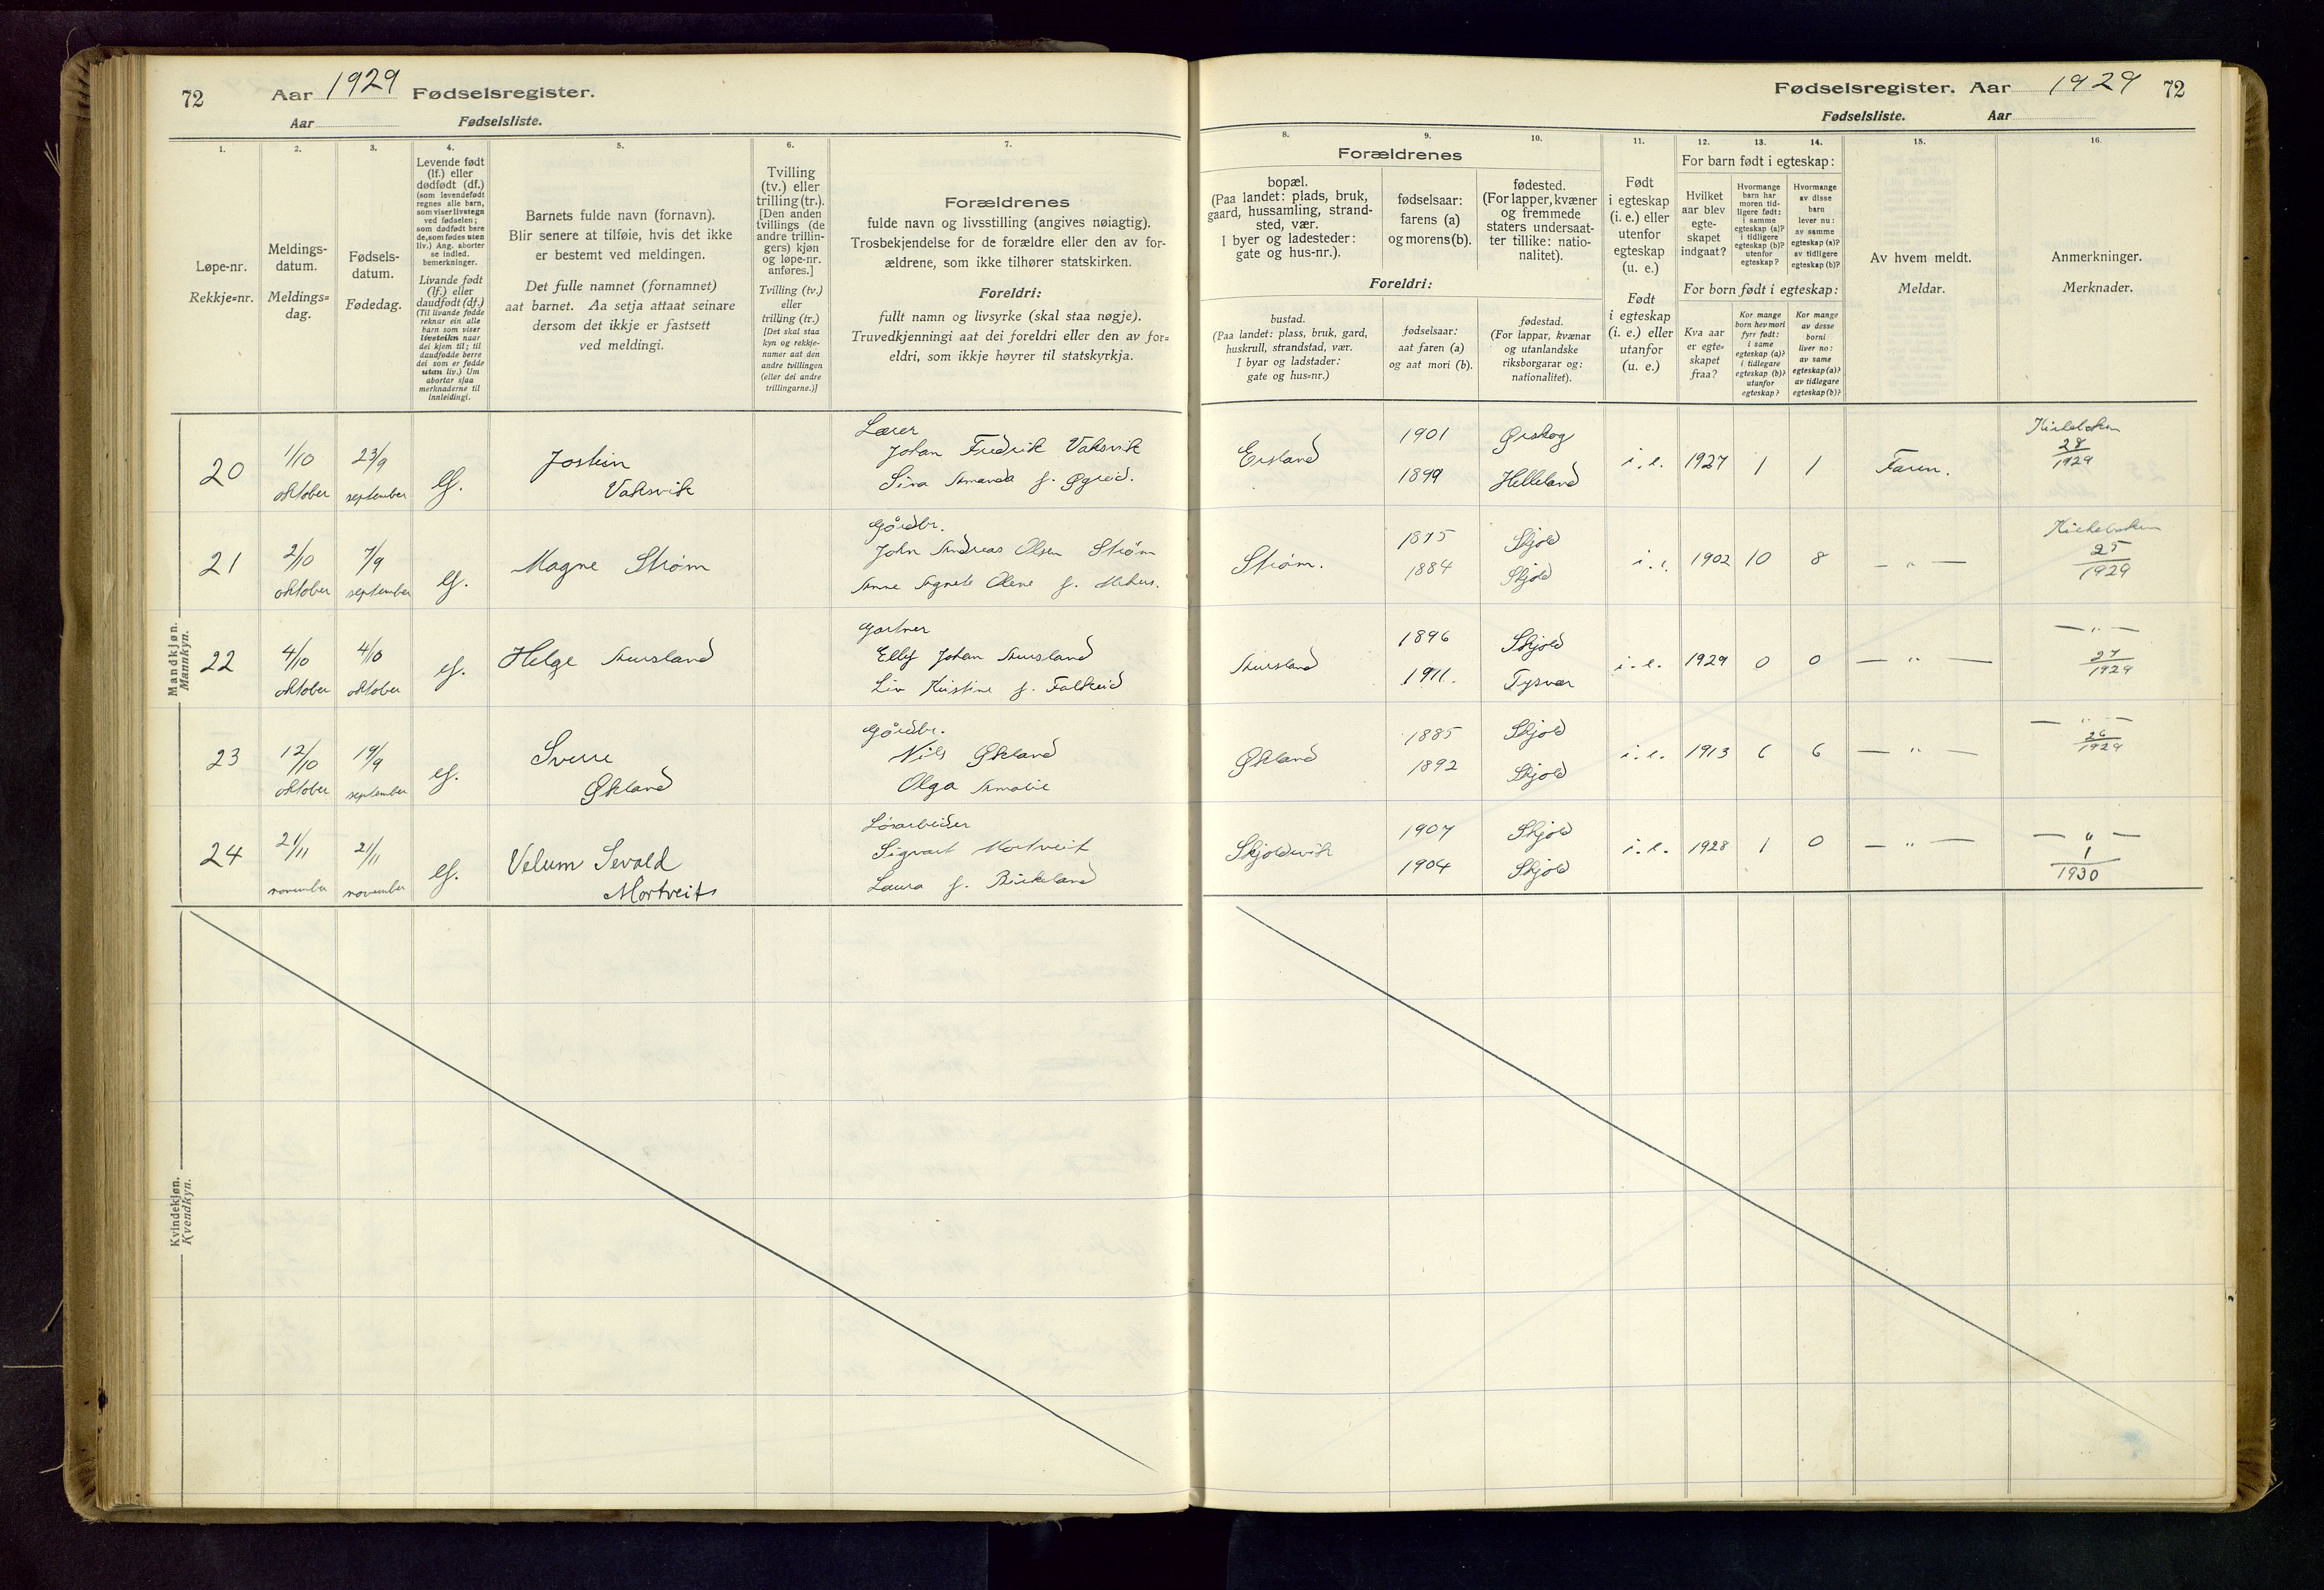 72 Aar 1929 Fødselsregister.
Aar Fødselsliste.
1.
Løpe-nr.
Rekkje-nr.
2.
Meldings-
datum.
Meldings-
dag.
3.
Fødsels-
datum.
Fødedag.
4.
Levende født
(lf.) eller
dødfødt (df.)
(som levendefødt
regnes alle barn,
som viser livstegn
ved fødselen;
som dødfødt bare
de, som fødes uten
liv.) Ang. aborter
se indled.
bemerkninger.
Livande født
(lf.) eller
daudfødt (df.)
(Til livande fødde
reknar ein alle
barn som viser
livsteikn naar
dei kjem til; til
daudfødde berre
dei som er fødde
utan liv.) Um
abortar sjaa
merknaderne til
innleidingi.
5.
Barnets fulde navn (fornavn).
Blir senere at tilføie, hvis det ikke
er bestemt ved meldingen.
Det fulle namnet (fornamnet)
aat barnet. Aa setja attaat seinare
dersom det ikkje er fastsett
ved meldingi.
6.
Tvilling
(tv.) eller
trilling (tr.).
[Den anden
tvillings (de
andre trillin-
gers) kjøn
og løpe-nr.
anføres.]
Tvilling (tv.)
eller
trilling (tr.)
[Det skal staa
kyn og rekkje-
numer aat den
andre tvillingen
(eller dei andre
trillingarne.)]
7.
Forældrenes
fulde navn og livsstilling (angives nøiagtig).
Trosbekjendelse for de forældre eller den av for-
ældrene, som ikke tilhører statskirken.
Foreldri:
fullt namn og livsyrke (skal staa nøgje).
Truvedkjenningi aat dei foreldri eller den av for-
eldri, som ikkje høyrer til statskyrkja.
Mandkjøn.
Mannkyn.
20 1/10 oktober 23/9 september lf. Jostein
Vaksvik
Lærer
Johan Fredrik Vaksvik
Sina Amanda f. Øgreid.
21 2/10 oktober 7/9 september lf. Magne Strøm
Gårdbr.
John Andreas Olsen Strøm
Anne Agnete Olene f. Mehus.
22 4/10 oktober 4/10 oktober lf. Helge Aursland
Gartner
Ellef Johan Aursland
Liv Kristine f. Falkeid
23 12/10 oktober 19/9 september lf. Sverre
Økland
Gårdbr.
Nils Økland
Olga Amalie
24 21/11 november 21/11 november lf. Velum Sevald
Mortveit
Løsarbeider
Sigvart Mortveit
Laura f. Birkeland
Kvindekjøn.
Kvendkyn.
Fødselsregister. Aar 1929 72
Fødselsliste. Aar
8.
Forældrenes
bopæl.
(Paa landet: plads, bruk,
gaard, hussamling, strand-
sted, vær.
I byer og ladesteder:
gate og hus-nr.).
Foreldri:
bustad.
(Paa landet: plass, bruk, gard,
huskrull, strandstad, vær.
I byar og ladstader:
gate og hus-nr.)
9.
fødselsaar:
farens (a)
og morens (b).
fødselsaar:
aat faren (a)
og aat mori (b).
10.
fødested.
(For lapper, kvæner
og fremmede
staters undersaat-
ter tillike: natio-
nalitet).
fødestad.
(For lappar, kvænar
og utanlandske
riksborgarar og:
nationalitet).
11.
Født
i egteskap
(i. e.) eller
utenfor
egteskap
(u. e.)
Født
i egteskap
(i. e.) eller
utanfor
(u. e.)
12. 13. 14.
For barn født i egteskap:
Hvilket
aar blev
egte-
skapet
indgaat?
Hvormange
barn har
moren tid-
ligere født:
i samme
egteskap (a)?
i tidligere
egteskap (b)?
utenfor
egteskap?
Hvormange
av disse
barn
lever nu:
av samme
egteskap (a)?
av tidligere
egteskap (b)?
For born født i egteskap:
Kva aar
er egte-
skapet
fraa?
Kor mange
born hev mori
fyrr født:
i same
egteskap (a)?
i tidlegare
egteskap (b)?
utanfor
egteskap?
Kor mange
av desse
borni
liver no:
av same
egteskap (a)?
av tidlegare
egteskap (b)?
15.
Av hvem meldt.
Meldar.
16.
Anmerkninger.
Merknader.
Ersland 1901 1899 Ørskog Helleland i. e. 1927 1 1 Faren. Kirkeboken 28/1929
Strøm. 1875 1884 Skjold Skjold i. e. 1902 10 8 — " — Kirkeboken 25/1929
Aursland 1896 1911. Skjold Tysvær i. e. 1929 0 0 — " — — " — 27/1929
Økland 1885 1892 Skjold Skjold i. e. 1913 6 6 — " — — " — 26/1929
Skjoldevik 1907 1904 Skjold Skjold i. e. 1928 1 0 — " — — " — 1/1930